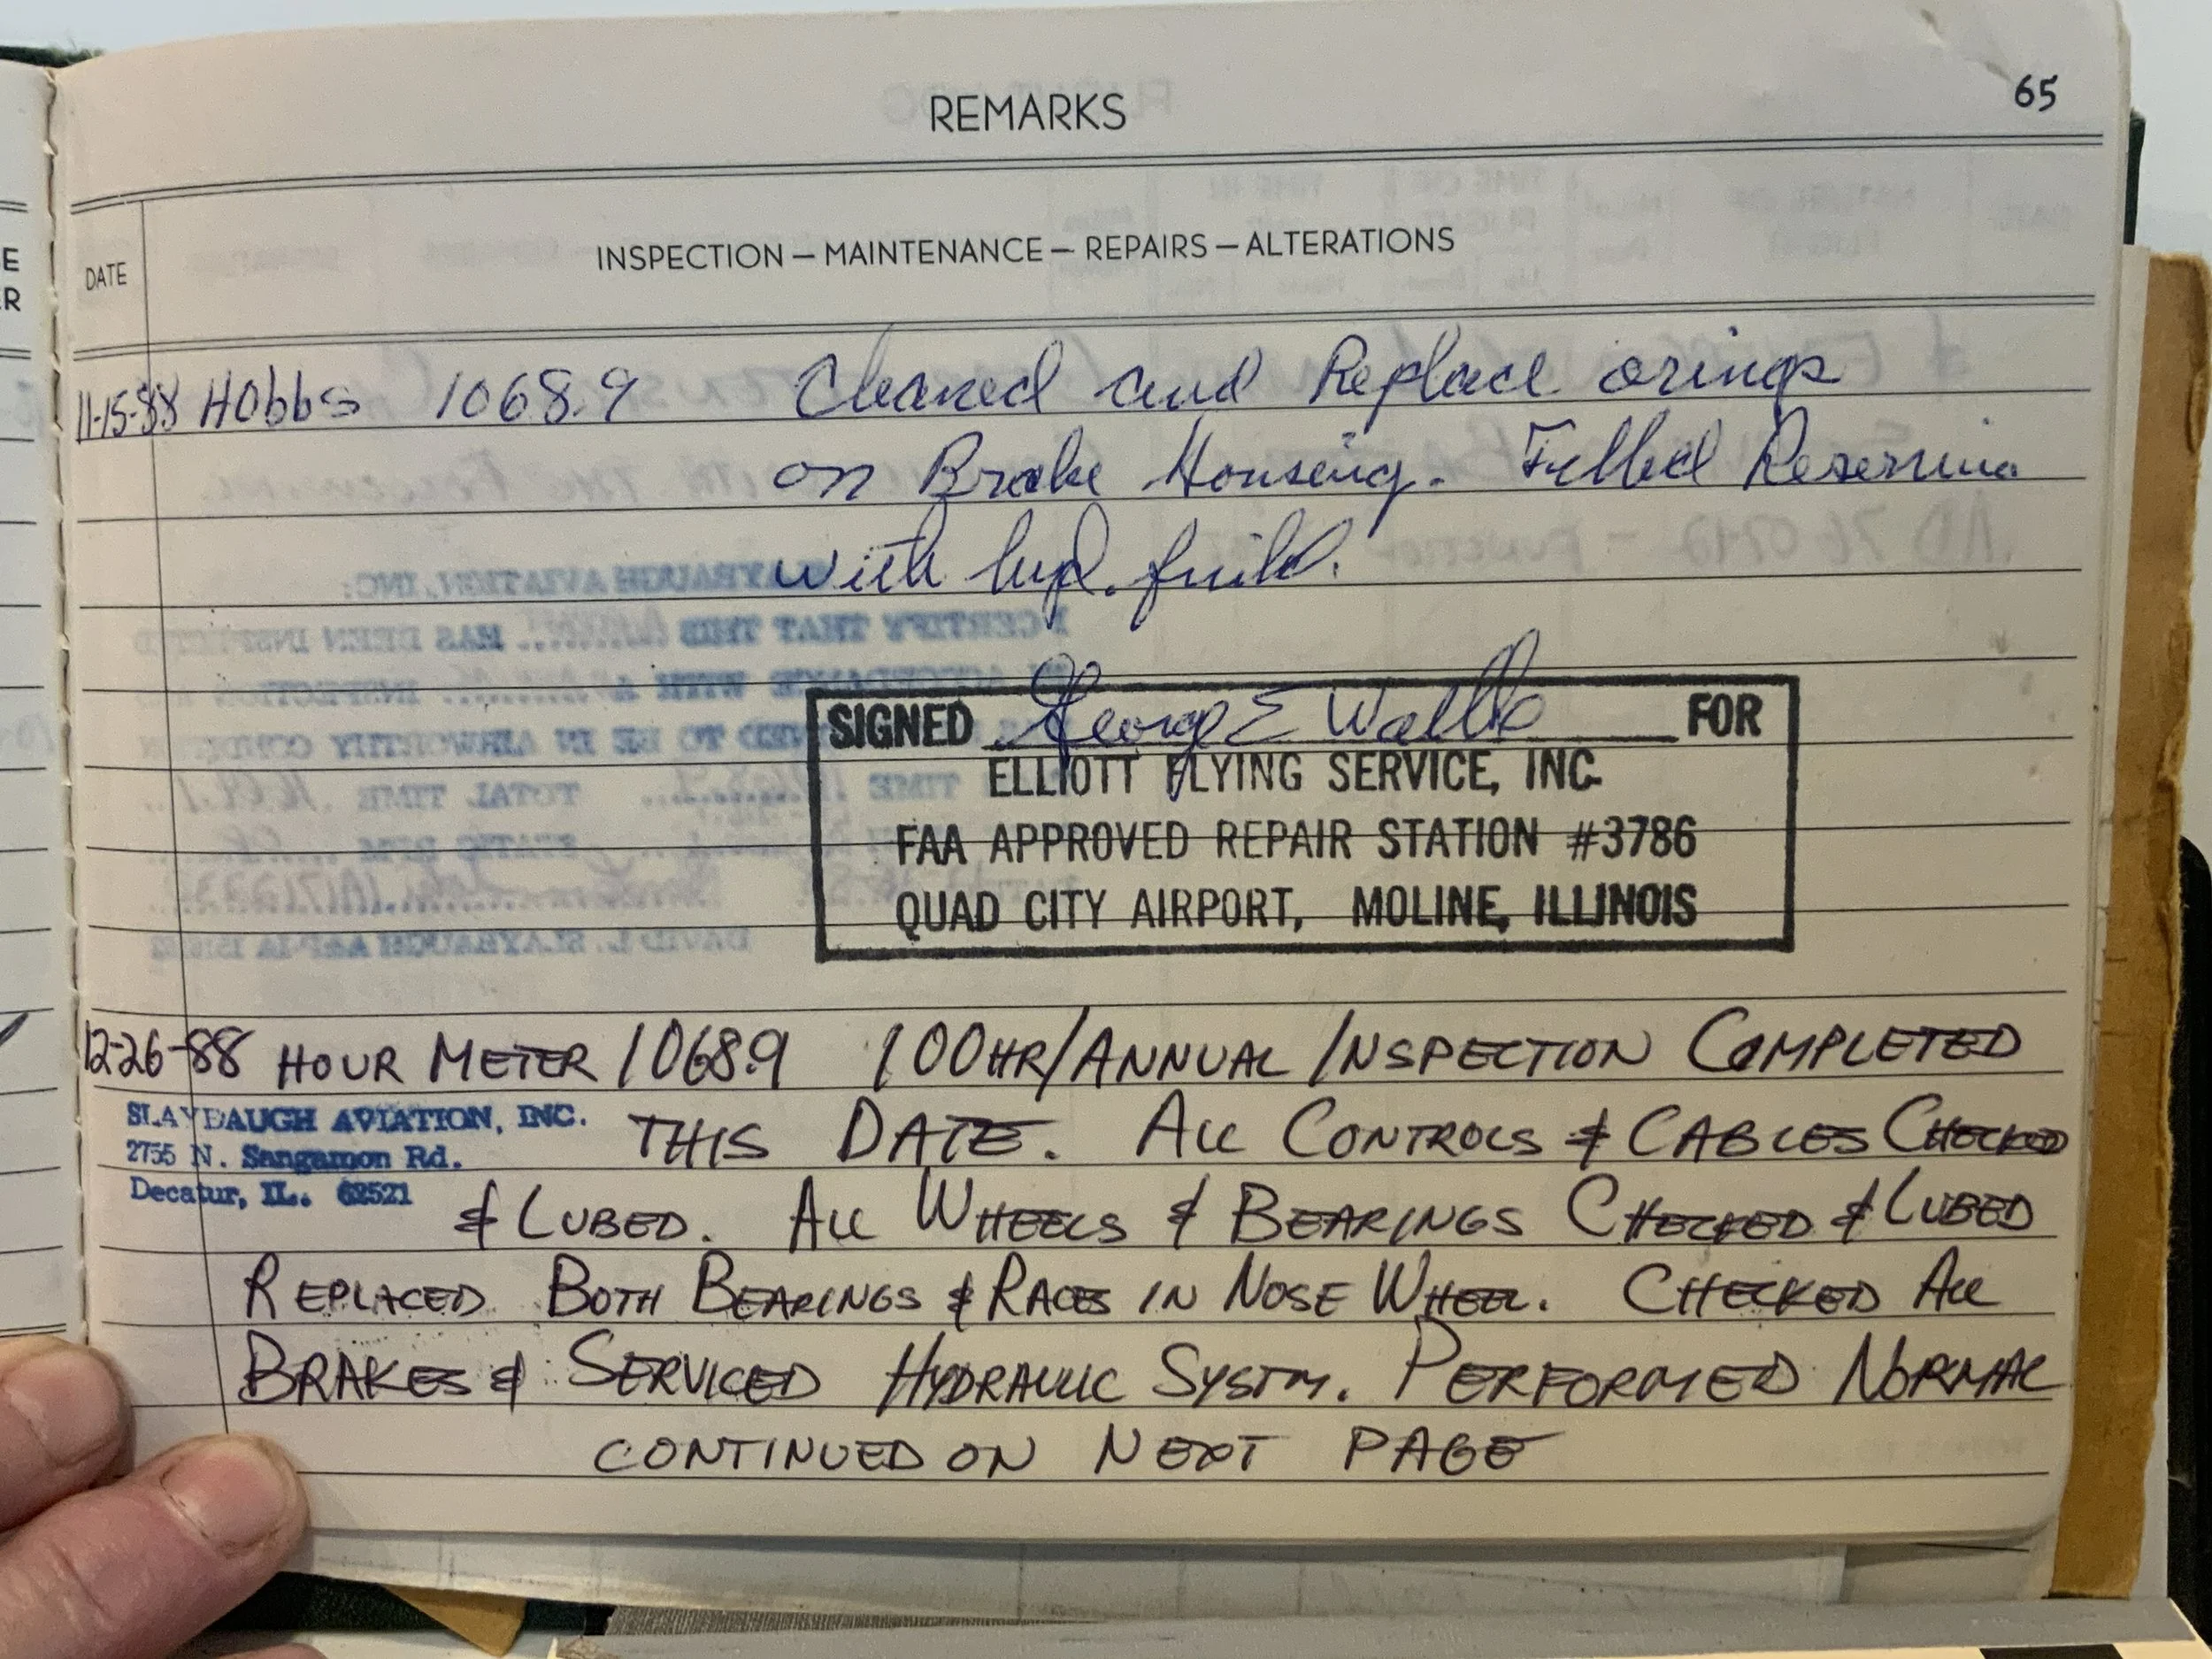 REMARKS
65
E
R
DATE
INSPECTION — MAINTENANCE — REPAIRS — ALTERATIONS
11-15-88 Hobbs 1068.9 Cleaned and Replace orings
on Brake Housing. Filled
with hyd. fuild.
SIGNED George E FOR
ELLIOTT FLYING SERVICE, INC.
FAA APPROVED REPAIR STATION #3786
QUAD CITY AIRPORT, MOLINE, ILLINOIS
12-26-88 HOUR METER 1068.9 100HR/ANNUAL INSPECTION COMPLETED
SLAYBAUGH AVIATION, INC.
2755 N. Sangamon Rd.
Decatur, IL. 62521
THIS DATE. ALL CONTROLS & CABLES CHECKED
& LUBED. ALL WHEELS & BEARINGS CHECKED & LUBED
REPLACED BOTH BEARINGS & RACES IN NOSE WHEEL. CHECKED ALL
BRAKES & SERVICED HYDRAULIC SYSTM. PERFORMED NORMAL
CONTINUED ON NEXT PAGE